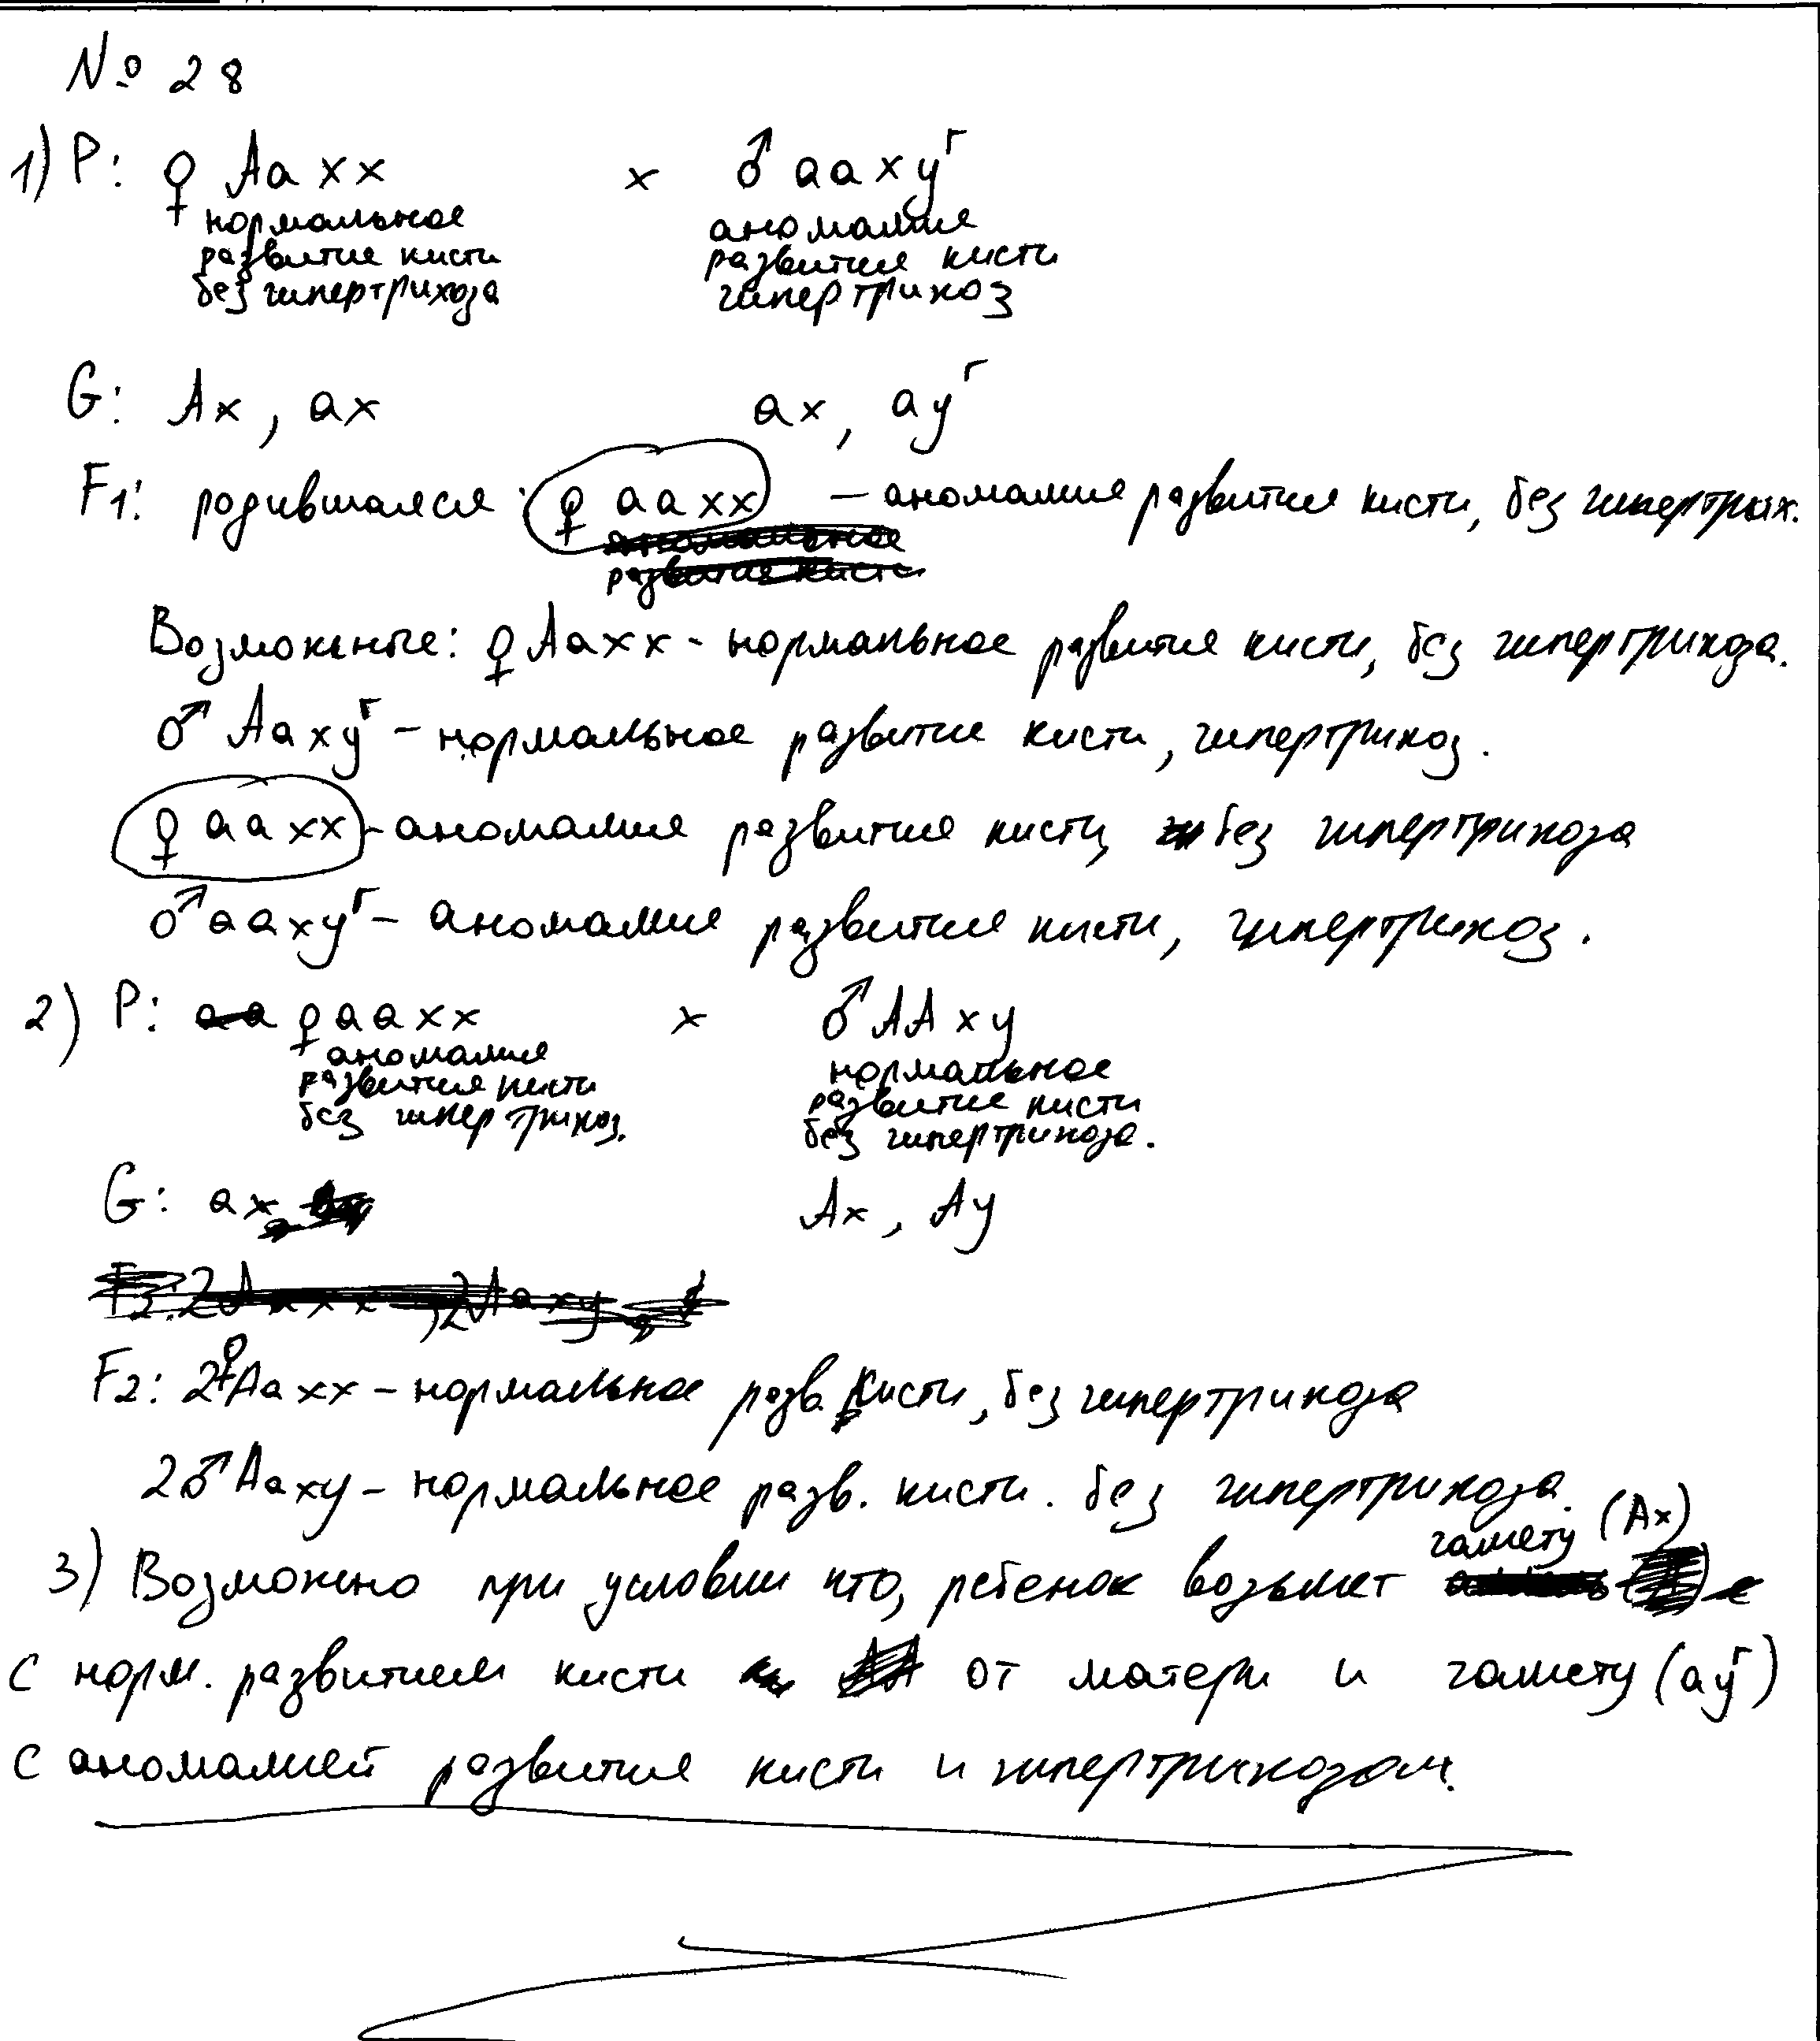 № 28
1) P: ♀ Aaxx × ♂ aaxyᴦ
нормальное аномалия
развитие кисти развития кисти
без гипертрихоза гипертрихоз
G: Ax, ax ax, ayᴦ
F1: родившаяся: ♀ aaxx — аномалия развития кисти, без гипертрих.
Возможные: ♀ Aaxx - нормальное развитие кисти, без гипертрихоза.
♂ Aaxyᴦ - нормальное развитие кисти, гипертрихоз.
♀ aaxx - аномалия развития кисти, без гипертрихоза
♂ aaxyᴦ - аномалия развития кисти, гипертрихоз.
2) P: ♀ aaxx × ♂ AAxy
аномалия нормальное
развития кисти развитие кисти
без гипертрихоз. без гипертрихоза.
G: ax Ax, Ay
F2: 2♀ Aaxx - нормальное разв. кисти, без гипертрихоза
2♂ Aaxy - нормальное разв. кисти. без гипертрихоза.
3) Возможно при условии что, ребенок возьмет гамету (Ax)
с норм. развитием кисти от матери и гамету (ayᴦ)
с аномалией развития кисти и гипертрихозом.